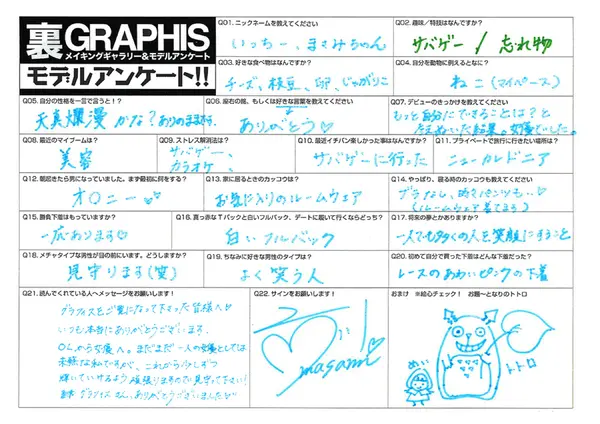 裏GRAPHIS
メイキングギャラリー&モデルアンケート
モデルアンケート!!
Q01. ニックネームを教えてください
いっちー、まさみちゃん
Q02. 趣味／特技はなんですか？
サバゲー / 忘れ物
Q03. 好きな食べ物はなんですか？
チーズ、枝豆、卵、じゃがりこ
Q04. 自分を動物に例えるとなに？
ねこ(マイペース)
Q05. 自分の性格を一言で言うと！？
天真爛漫かな？ありのままです。
Q06. 座右の銘、もしくは好きな言葉を教えてください
ありがとう♡
Q07. デビューのきっかけを教えてください
もっと自分にできることは？と
結果。女優でした。
Q08. 最近のマイブームは？
美容
Q09. ストレス解消法は？
サバゲー、
カラオケ、
Q10. 最近イチバン楽しかった事はなんですか？
サバゲーに行った
Q11. プライベートで旅行に行きたい場所は？
ニューカレドニア
Q12. 朝起きたら男になっていました。まず最初に何をする？
オ○ニー
Q13. 家に居るときのカッコウは？
お気に入りのルームウェア
Q14. やっぱり、寝る時のカッコウも教えてください
ブラなし、時々パンツも…♡
(ルームウェア着てます)
Q15. 勝負下着はもっていますか？
一応あります♡
Q16. 真っ赤なTバックと白いフルバック、デートに履いて行くならどっち？
白いフルバック
Q17. 将来の夢とかありますか？
一人でも多くの人を笑顔にすること
Q18. メチャタイプな男性が目の前にいます。どうしますか？
見守ります(笑)
Q19. ちなみに好きな男性のタイプは？
よく笑う人
Q20. 初めて自分で買った下着はどんな下着だった？
レースのあわいピンクの下着
Q21. 読んでくれている人へメッセージをお願いします！
グラフィスをご覧になって下さった皆様へ♡
いつも本当にありがとうございます。
OLから女優へ。まだまだ一人の女優としては
未熟な私ですが、これから少しずつ
輝いていけるよう頑張りますので見守って下さい!
グラフィスさん、ありがとうございました♡
Q22. サインをお願いします！
masami
おまけ ※絵心チェック！ お題→となりのトトロ
めい
トトロ